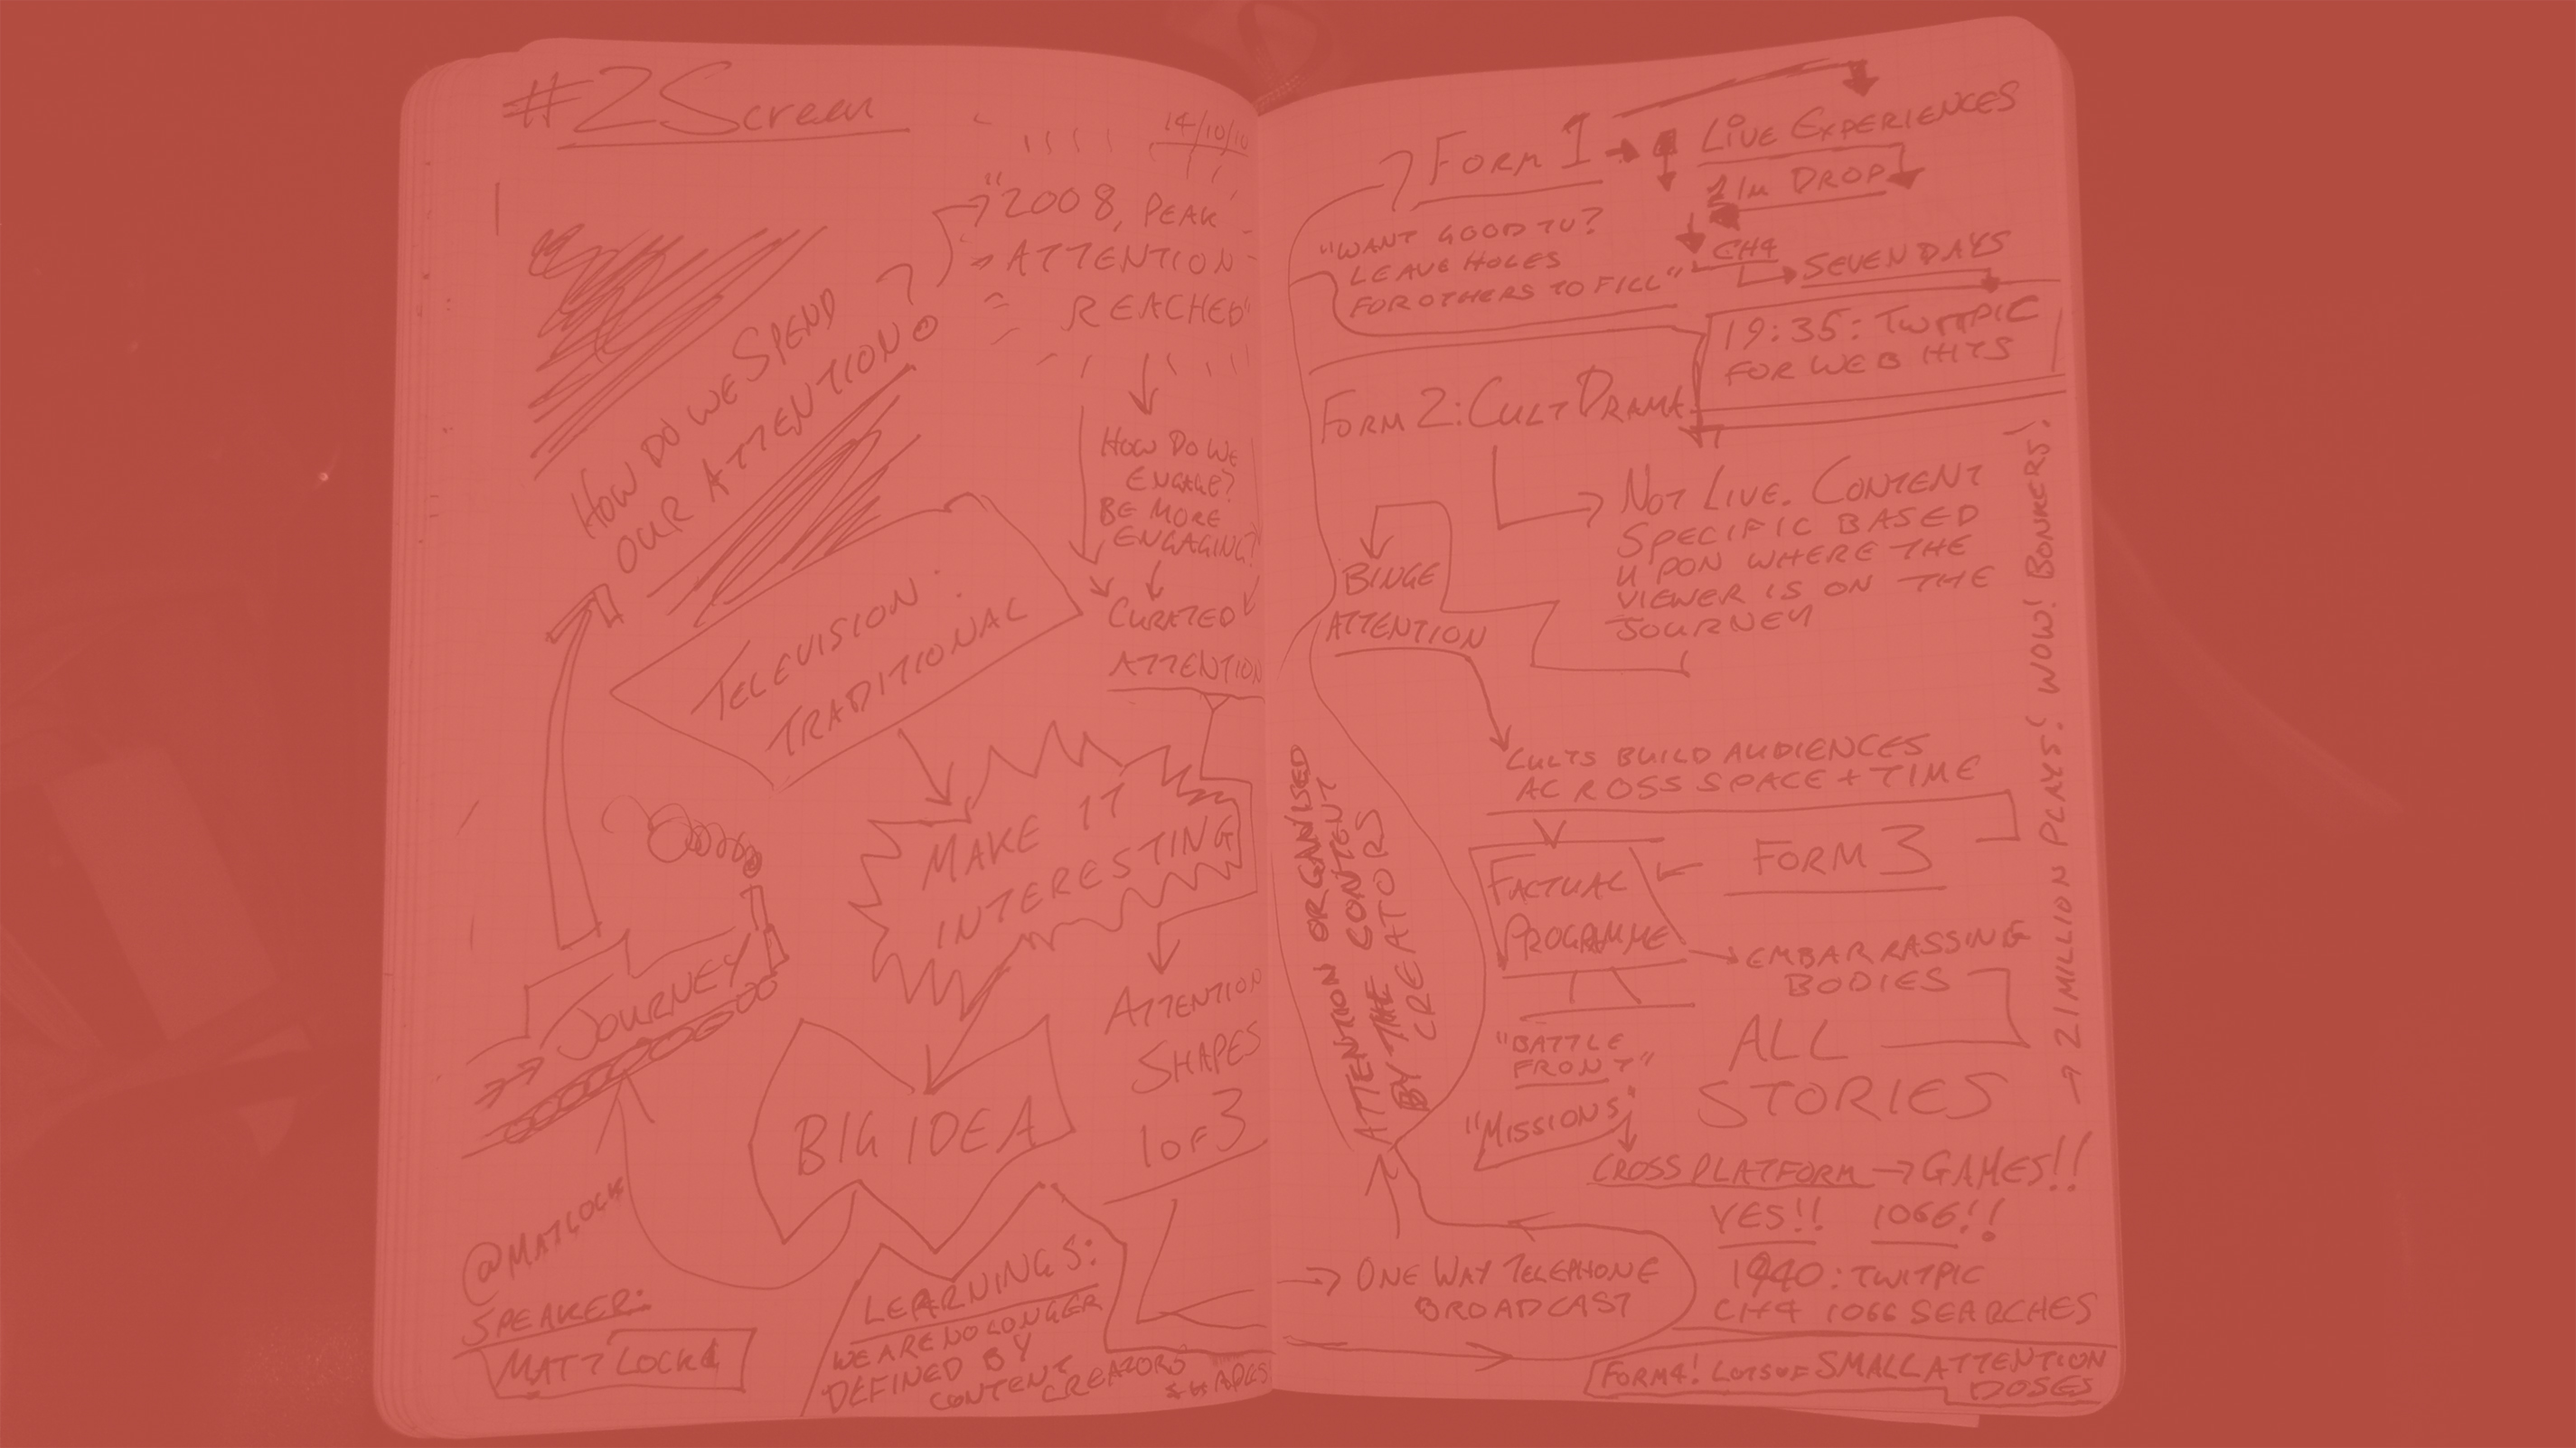 #2Screen
14/10/10
"2008, PEAK
ATTENTION
REACHED"
HOW DO WE SPEND
OUR ATTENTION?
HOW DO WE
ENGAGE?
BE MORE
ENGAGING?
CURATED
ATTENTION
TELEVISION:
TRADITIONAL
MAKE IT
INTERESTING
JOURNEY
BIG IDEA
ATTENTION
SHAPES
1 OF 3
@MATLOCK
SPEAKER:
MATT LOCKE
LEARNINGS:
WE ARE NO LONGER
DEFINED BY
CONTENT
CREATORS
FORM 1
LIVE EXPERIENCES
DROP
"WANT GOOD TV?
LEAVE HOLES
FOR OTHERS TO FILL"
CH4
SEVEN DAYS
19:35: TWITPIC
FOR WEB HITS
FORM 2: CULT DRAMA
NOT LIVE. CONTENT
SPECIFIC BASED
UPON WHERE THE
VIEWER IS ON THE
JOURNEY
BINGE
ATTENTION
CULTS BUILD AUDIENCES
ACROSS SPACE + TIME
FORM 3
FACTUAL
PROGRAMME
EMBARRASSING
BODIES
ALL
STORIES
21 MILLION PLAYS! WOW! BONKERS!
ATTENTION ORGANISED
BY THE CONTENT
CREATORS
"BATTLE
FRONT"
"MISSIONS"
CROSS PLATFORM → GAMES!!
YES!! 1066!!
1940: TWITPIC
CH4 1066 SEARCHES
ONE WAY TELEPHONE
BROADCAST
FORM 4! LOTS OF SMALL ATTENTION
DOSES